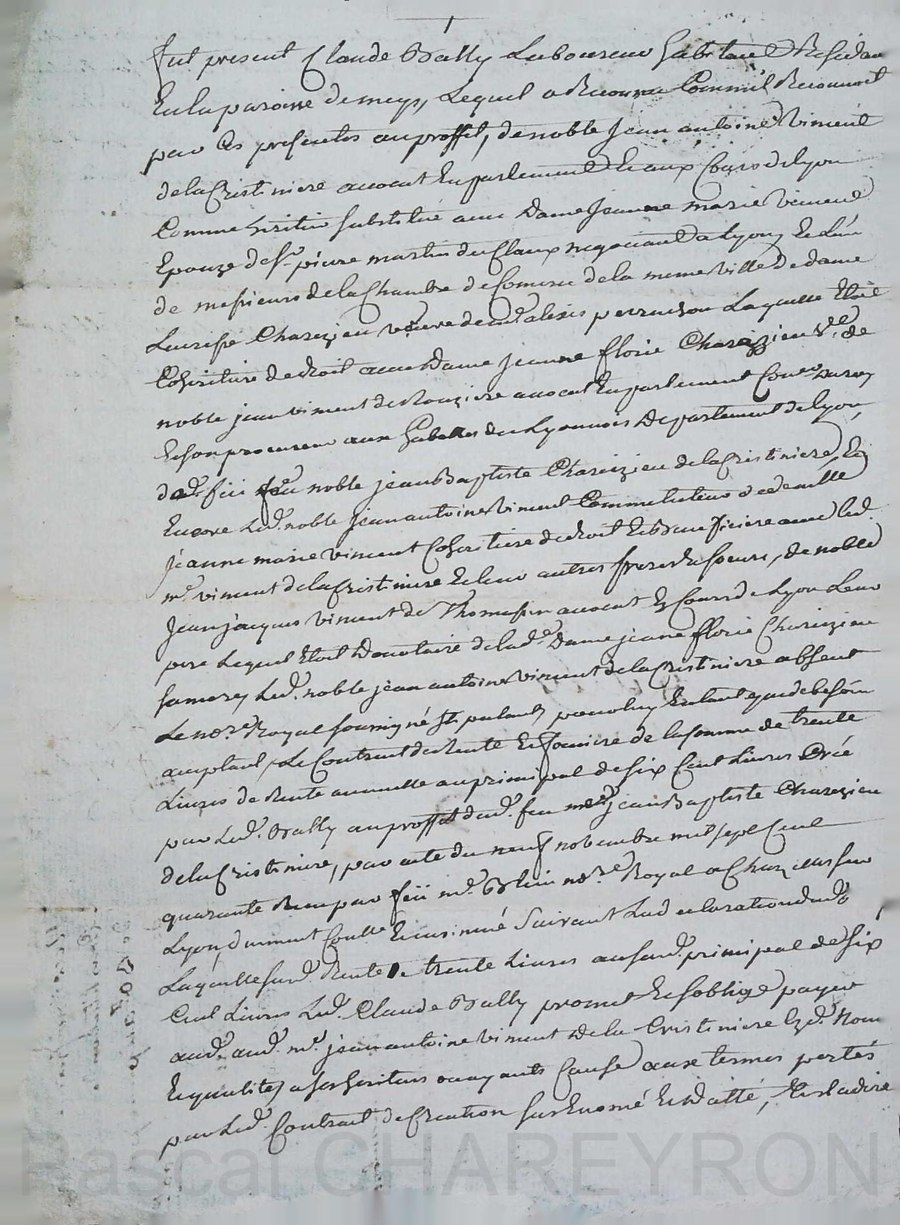 1
fut present Claude Bally Laboureur habitant & Residan
En la paroisse de meys, Lequel a Reconnu Comme il Reconnoit
par Ces presentes au proffit, de noble jean antoine Viment
de la Cristiniere avocat En parlement & aux Cours de Lyon
Comme heritier substitué avec Dame Jeanne marie Viment
Epouze de Sr. pierre martin negociant a Lyon, &
de messieurs de la Chambre de Comerce de la meme Ville & de dame
Charezieu veuve de mr. alexis Laquelle Etoit
Coheritiere de droit avec Dame jeanne florie Charezieu Ve. de
noble jean viment de avocat En parlement Coner. du roy
& son procureur aux Gabelles du Lyonnois Departement de Lyon,
feu noble jean Baptiste Charezieu de la Cristiniere, &
Encore Led. noble jean antoine Viment
jeanne marie viment Coheritiere de droit avec led.
mr. viment de la Cristiniere & leur autres freres & soeurs, de noble
Jean jacques viment de Thomassin avocat Es Cours de Lyon Leur
pere Lequel Etoit Donataire de lade. Dame jeanne florie Charezieu
sa mere, Led. noble jean antoine Viment de la Cristiniere absent
Le nore. Royal soussigné stipulant pour luy En tant que de besoin
acceptant, Le Contrat de Rente & fonciere de la somme de trente
Livres de Rente annuelle au principal de six Cent Livres Créé
par Led. Bally au proffit dud. feu mre. jean Baptiste Charezieu
de la Cristiniere, par acte du neuf novembre mil sept Cent
quarante Reçu par feü mr. nore. Royal a
Lyon, duement Contrôlé & insinué suivant La declaration dud.
Laquelle susd. Rente de trente Livres au susd. principal de six
Cent Livres Led. Claude Bally promet & soblige payer
aud. mr. jean antoine viment de la Cristiniere Esd. Nom
& qualites a ses heritiers ou ayants Cause aux termes portés
par Led. Contrat de Creation sus Enomé & datté, & cest a dire
Pascal CHAREYRON